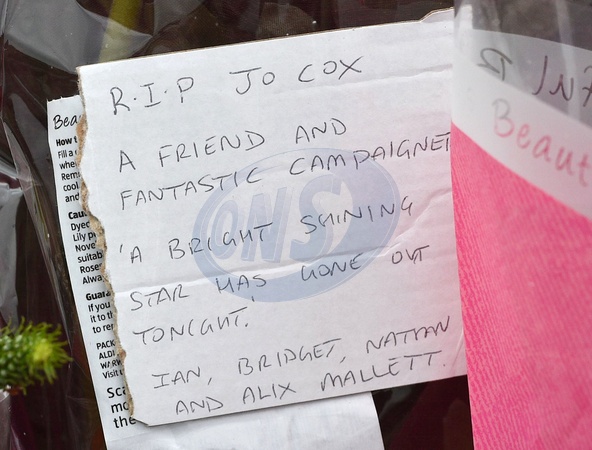 R.I.P JO COX
A FRIEND AND
FANTASTIC CAMPAIGNER
'A BRIGHT SHINING
STAR HAS GONE OUT
TONIGHT.'
IAN, BRIDGET, NATHAN
AND ALIX MALLETT.
ONS
Beau
How t
Fill a
whe
Rem
cool
and
Cau
Dyed
Lily p
Nove
suitab
Rose
Alwa
Guara
If you
it to th
to re
PACK
ALDI
WARW
Visit
Sca
mo
the
Beaut